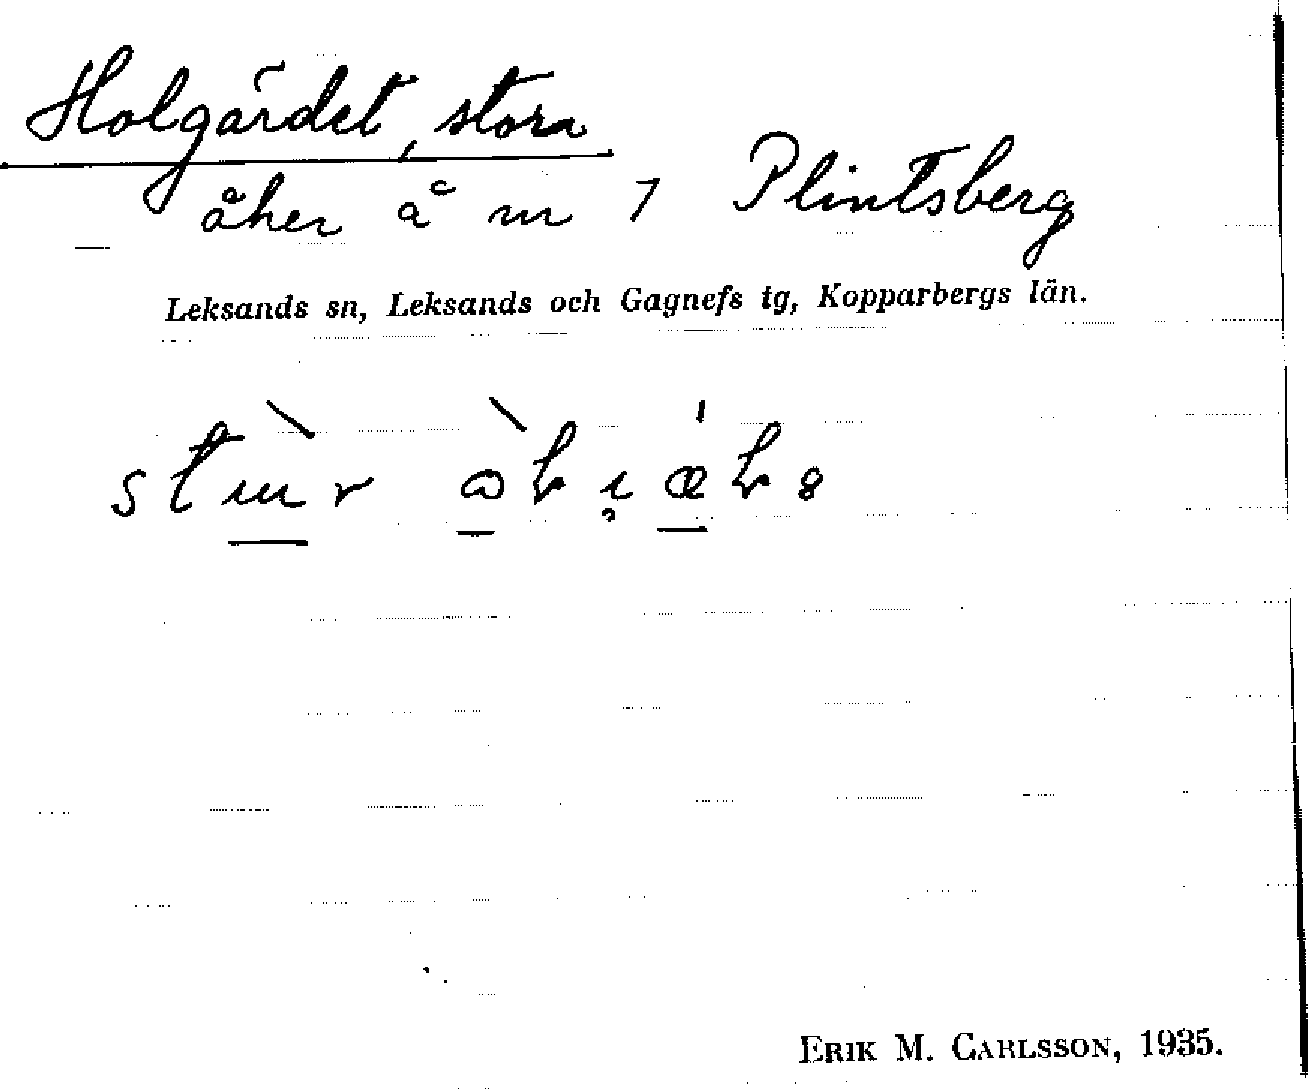 Holgärdet, stora
åker å nr 7 Plintsberg
Leksands sn, Leksands och Gagnefs tg, Kopparbergs län.
ERIK M. CARLSSON, 1935.